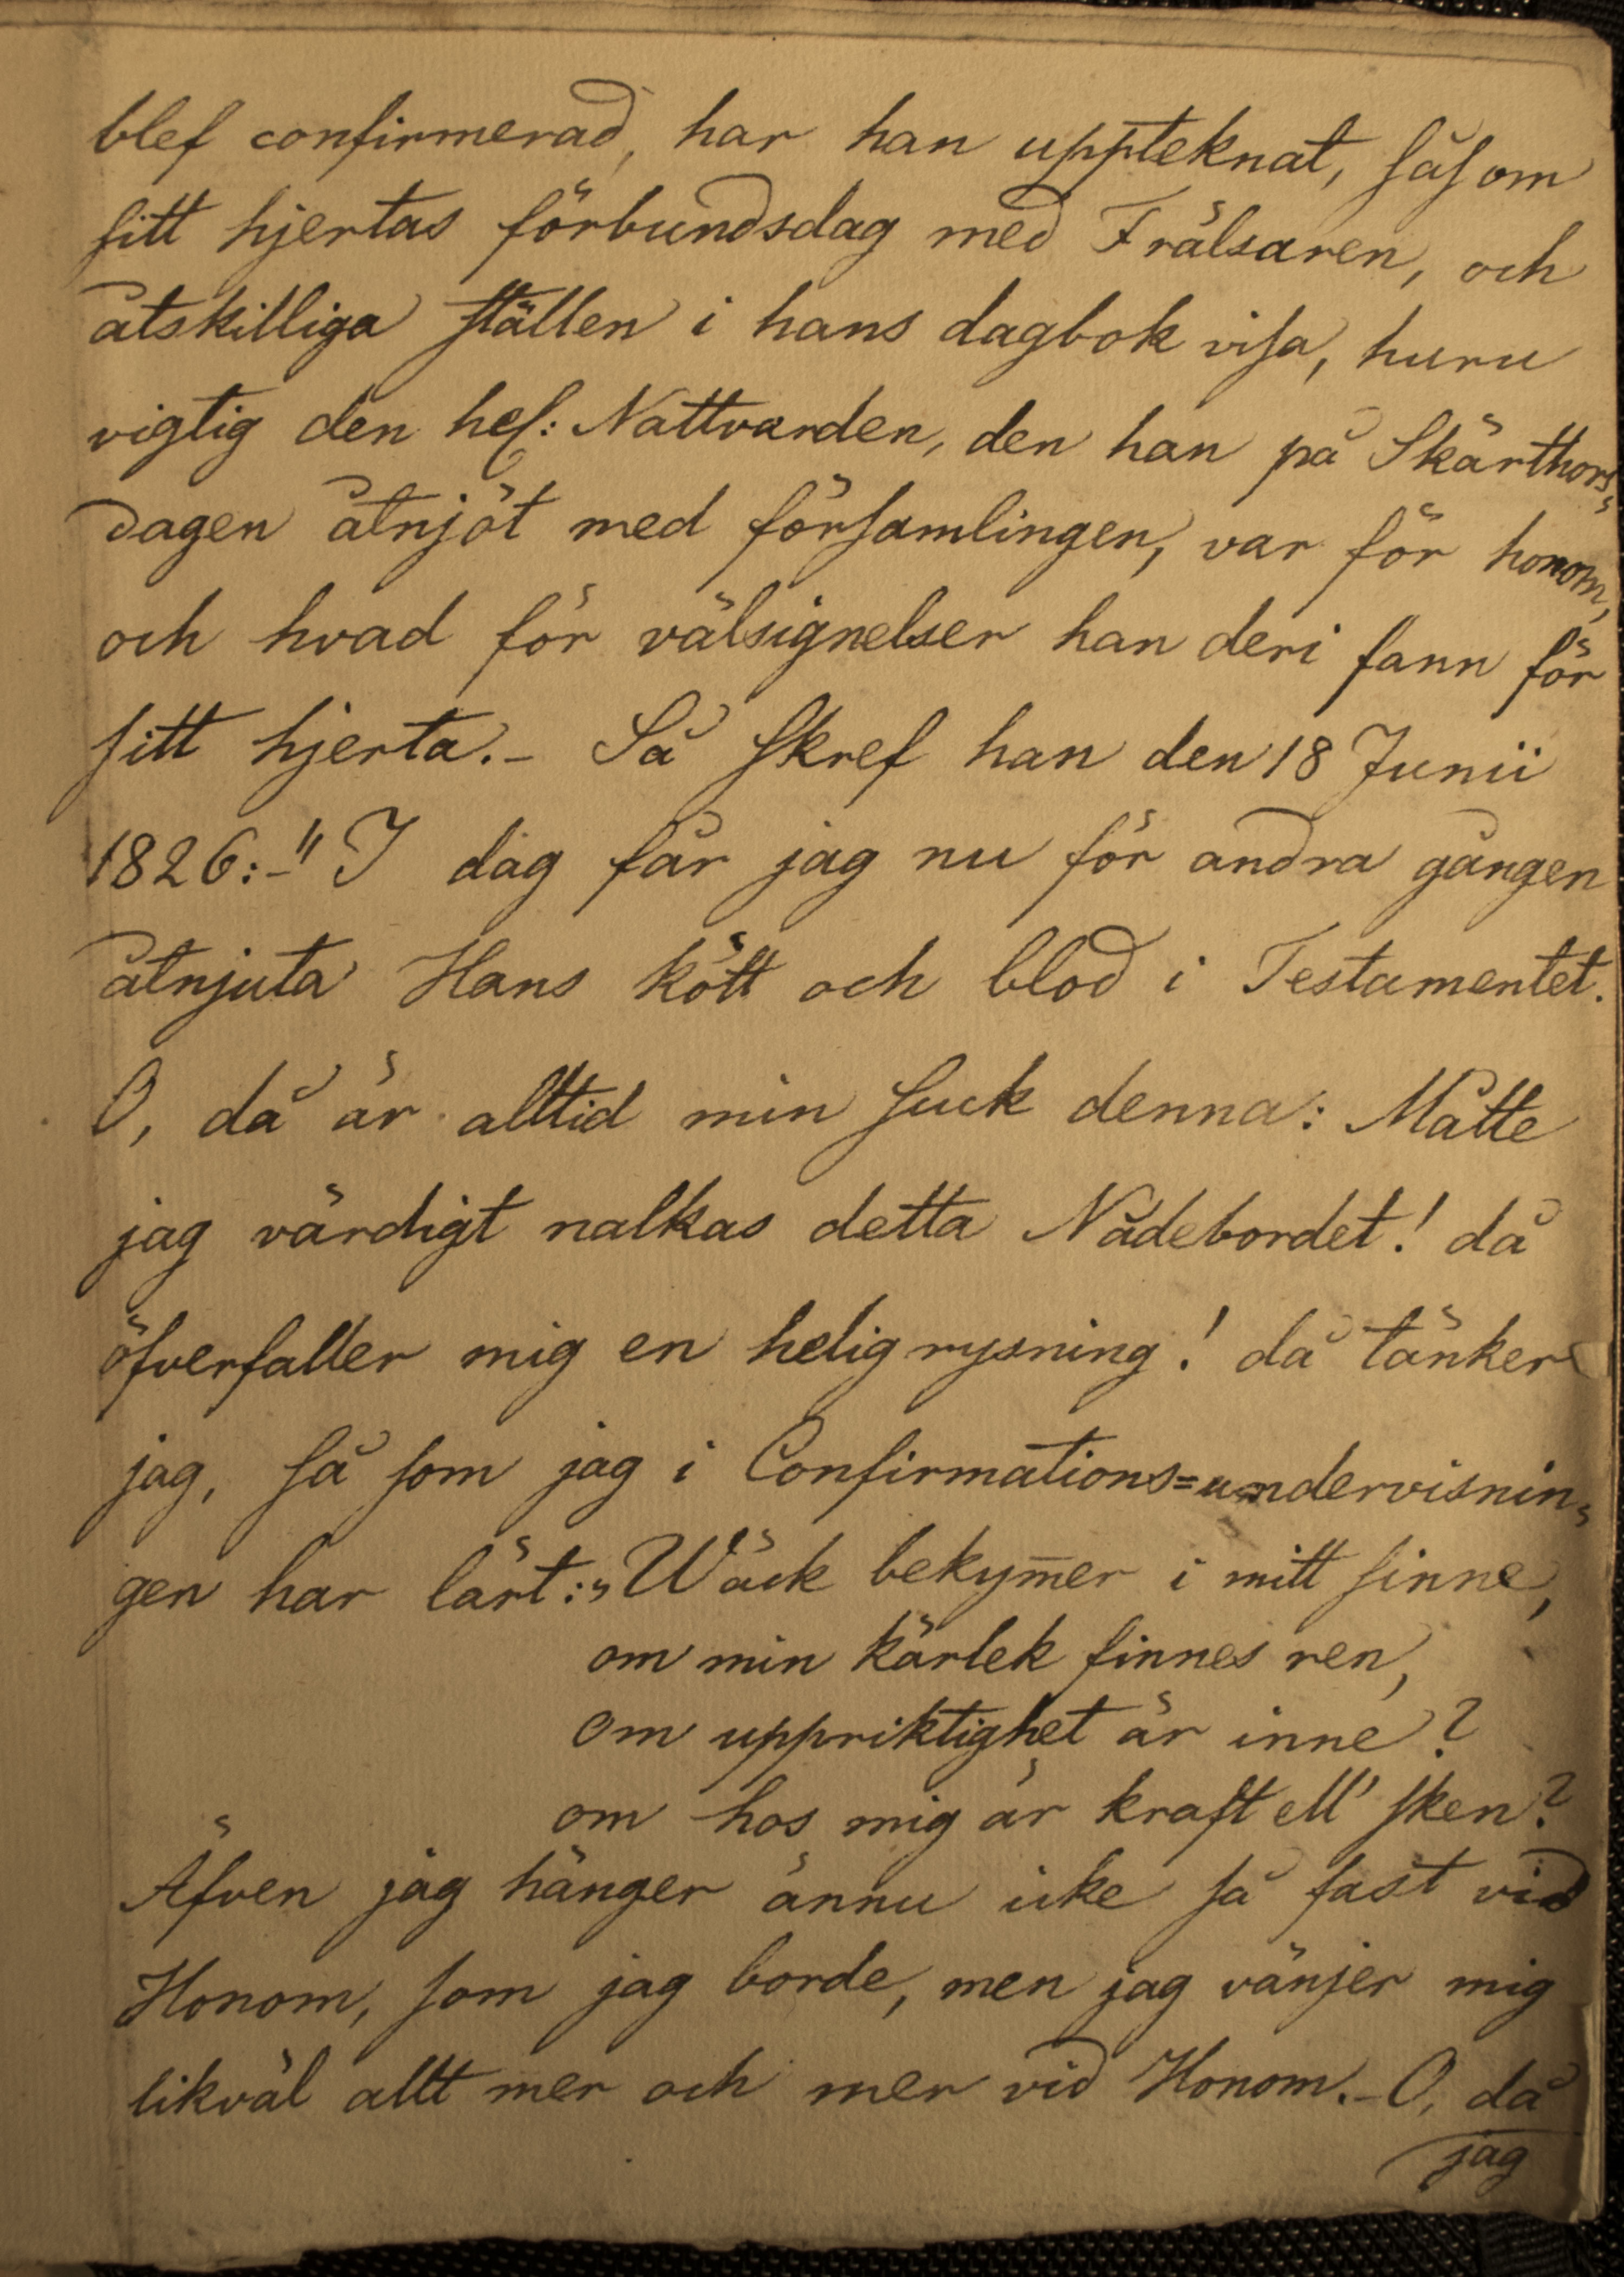 blef confirmerad, har han uppteknat, såsom
sitt hjertas förbundsdag med Frälsaren, och
åtskilliga ställen i hans dagbok visa, huru
vigtig den hel: Nattvarden, den han på Skärthors„
dagen åtnjöt med församlingen, var för honom,
och hvad för välsignelser han deri fann för
sitt hjerta.- Så skref han den 18 Junii
1826:-" I dag får jag nu för andra gången
åtnjuta Hans kött och blod i Testamentet.
O, då är alltid min suck denna: Måtte
jag värdigt nalkas detta Nådebordet! då
öfverfaller mig en helig rysning! då tänker
jag, så som jag i Confirmations=undervisnin„
gen har lärt:„ Wäck bekym̅er i mitt sinne,
om min kärlek finnes ren,
om uppriktighet är inne?
om hos mig är kraft ell' sken?
Äfven jag hänger ännu icke så fast vid
Honom, som jag borde, men jag vänjer mig
likväl allt mer och mer vid Honom.- O, då
jag